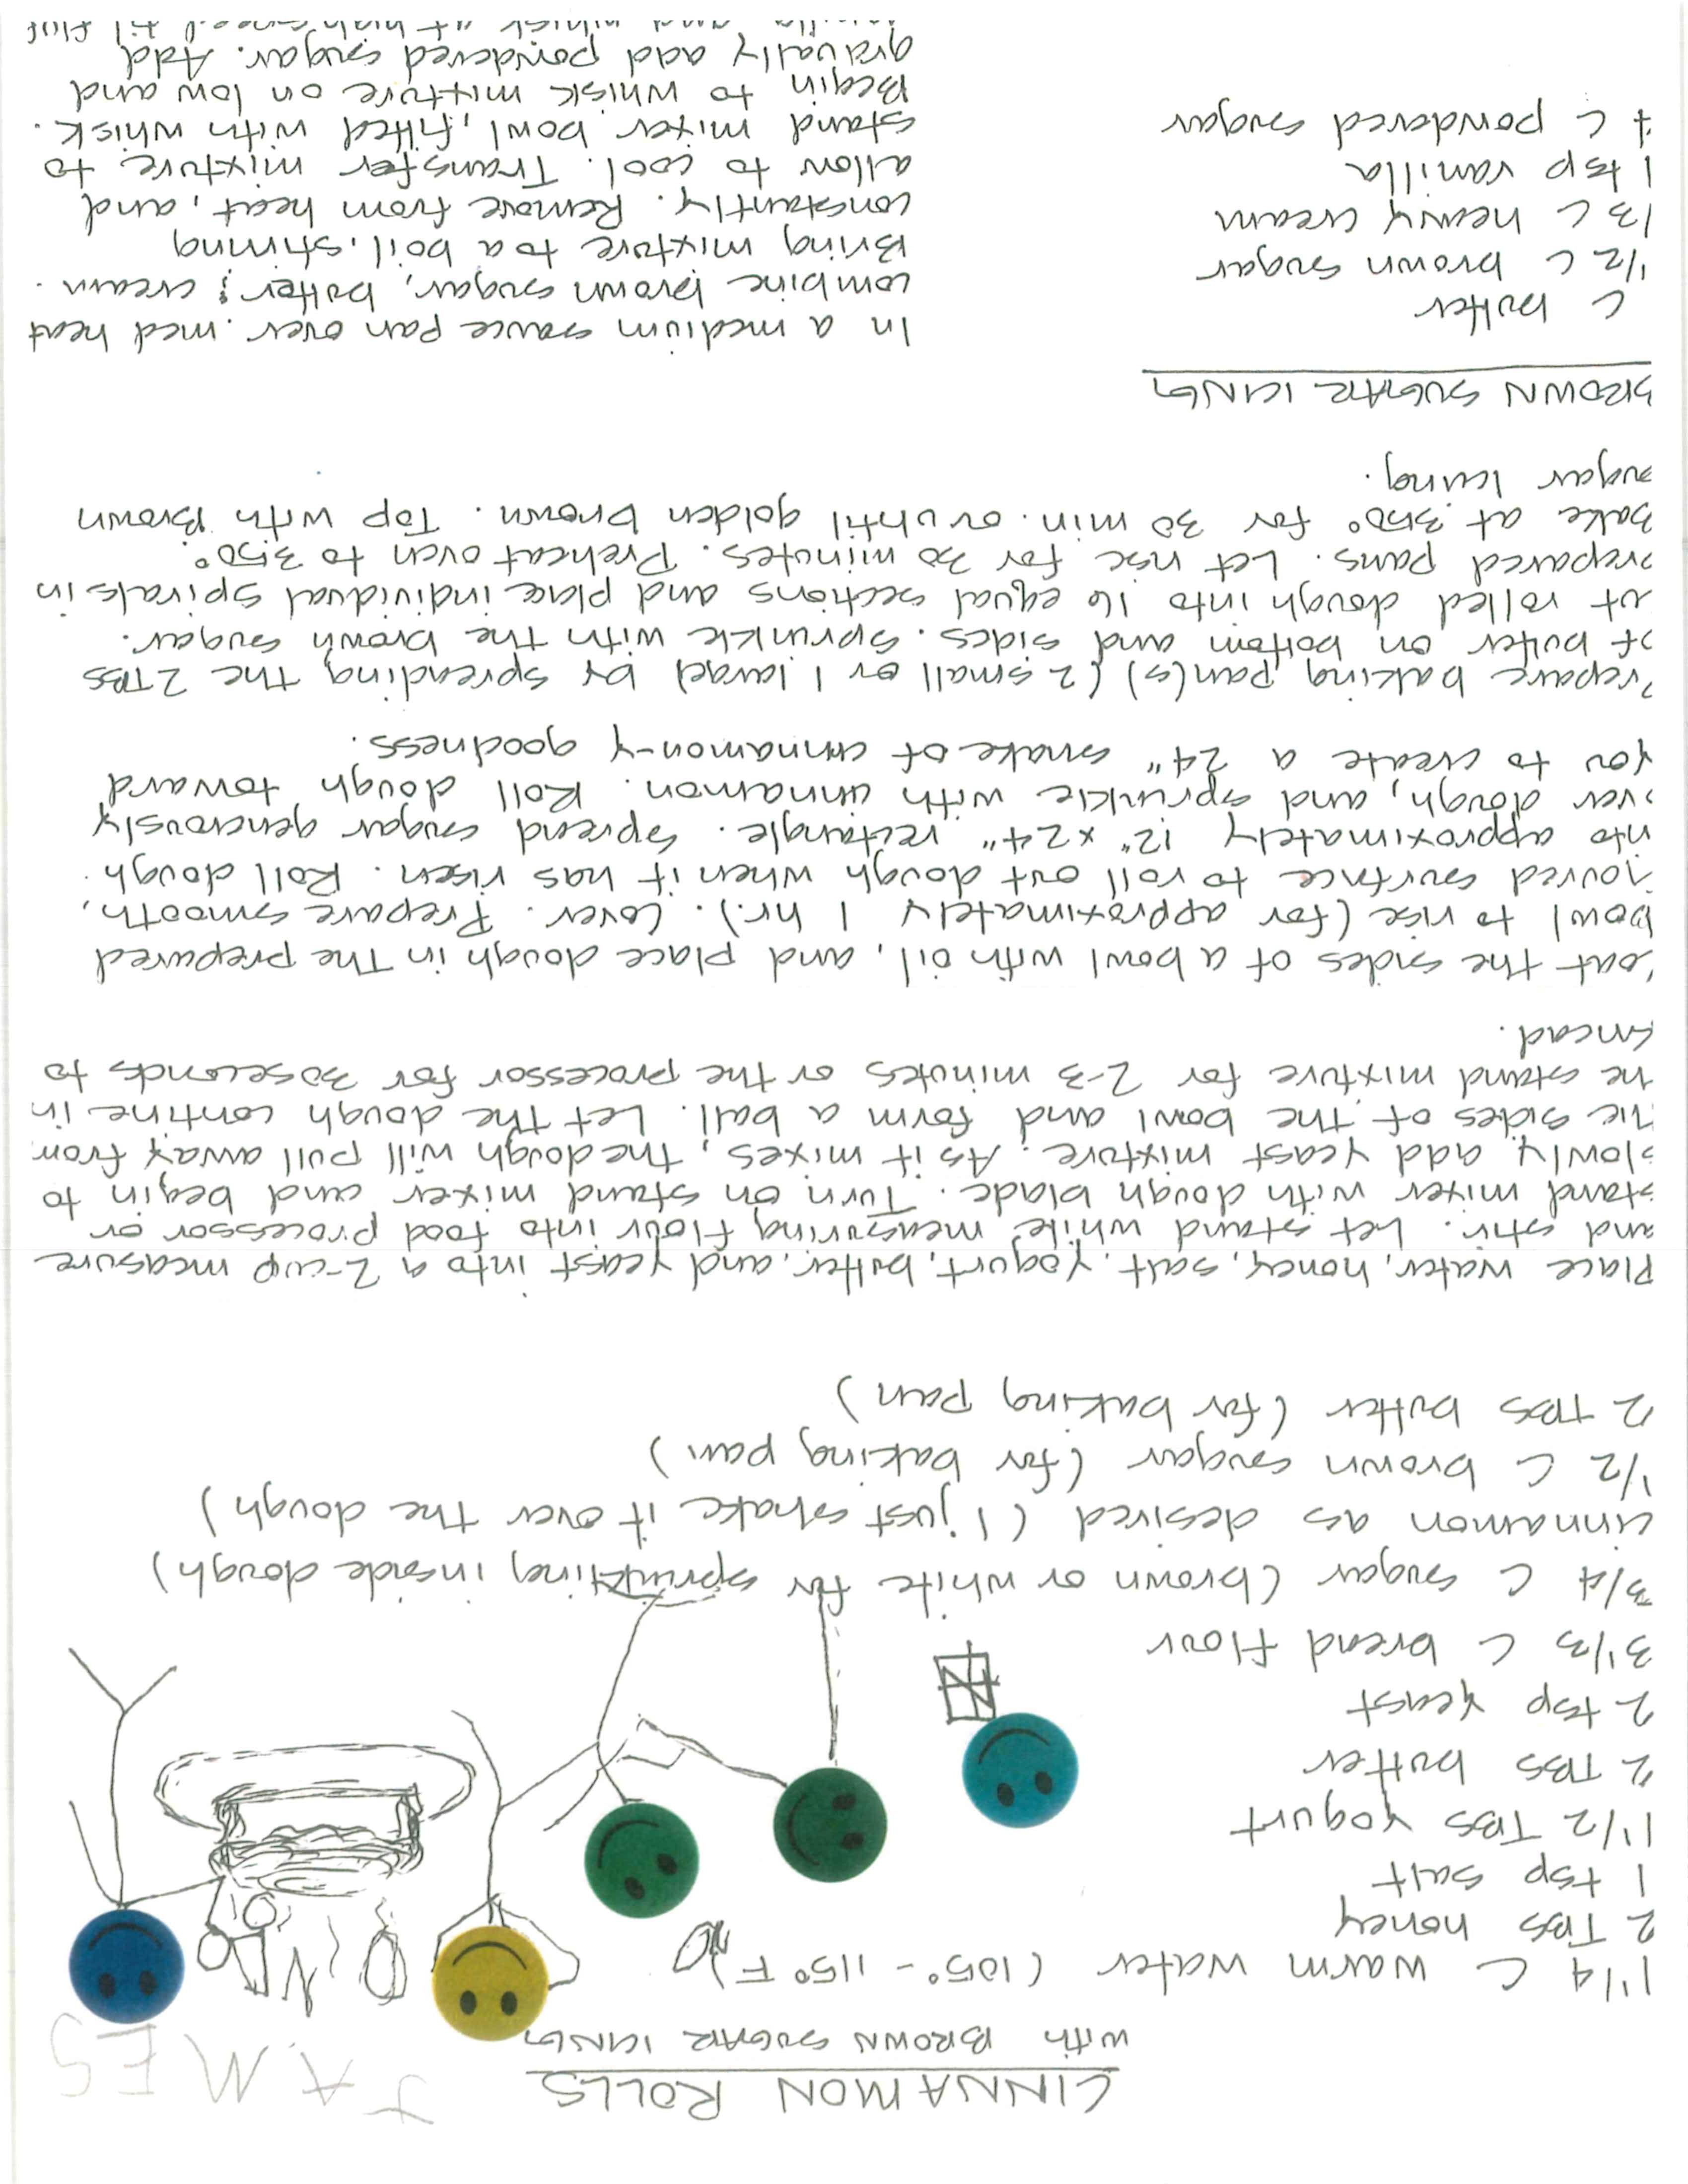 CINNAMON ROLLS
with BROWN SUGAR ICING
JAMES
1 1/4 C warm water (105° - 115° F)
2 TBS honey
1 tsp salt
1 1/2 TBS yogurt
2 TBS butter
2 tsp yeast
3 1/3 C bread flour
3/4 C sugar (brown or white for sprinkling inside dough)
cinnamon as desired (I just shake it over the dough)
1/2 C brown sugar (for baking pan)
2 TBS butter (for baking pan)
Place water, honey, salt, yogurt, butter, and yeast into a 2-cup measure
and stir. Let stand while measuring flour into food processor or
stand mixer with dough blade. Turn on stand mixer and begin to
slowly add yeast mixture. As it mixes, the dough will pull away from
the sides of the bowl and form a ball. Let the dough contine in
he stand mixture for 2-3 minutes or the processor for 30 seconds to
knead.
coat the sides of a bowl with oil, and place dough in the prepared
bowl to rise (for approximately 1 hr.). Cover. Prepare smooth,
loured surface to roll out dough when it has risen. Roll dough
nto approximately 12" x 24" rectangle. Spread sugar generously
over dough, and sprinkle with cinnamon. Roll dough toward
you to create a 24" snake of cinnamon-y goodness.
Prepare baking pan(s) (2 small or 1 large) by spreading the 2 TBS
of butter on bottom and sides. Sprinkle with the brown sugar.
ut rolled dough into 16 equal sections and place individual spirals in
prepared pans. Let rise for 30 minutes. Preheat oven to 350°.
bake at 350° for 30 min. or until golden brown. Top with Brown
sugar Icing.
BROWN SUGAR ICING
C butter
1/2 C brown sugar
1/3 C heavy cream
1 tsp vanilla
C powdered sugar
In a medium sauce pan over med heat
combine brown sugar, butter & cream.
Bring mixture to a boil, stirring
constantly. Remove from heat, and
allow to cool. Transfer mixture to
stand mixer bowl, fitted with whisk.
Begin to whisk mixture on low and
gradually add powdered sugar. Add
vanilla and whisk at high speed til fluf